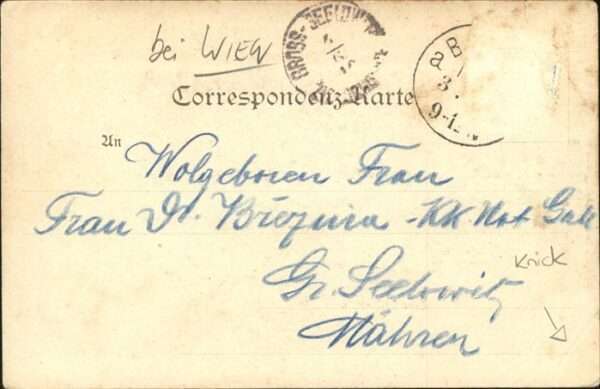 bei WIEN
GROSS-SEELOWITZ
a B
3.
9-1
Correspondenz-Karte
An
Wolgeboren Frau
Frau Dr. Březina - KK Not Gatt
Gr. Seelowitz
Mähren
Knick